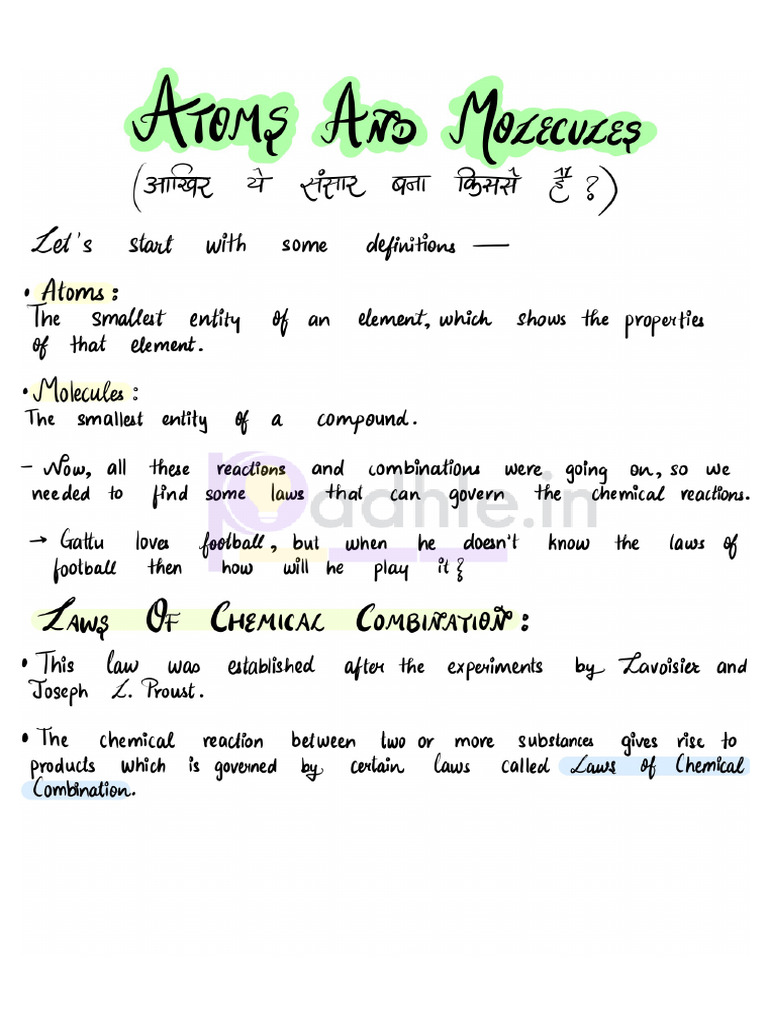 ATOMS AND MOLECULES
(आखिर ये संसार बना किससे है ?)
Let's start with some definitions —
• Atoms :
The smallest entity of an element, which shows the properties
of that element.
• Molecules :
The smallest entity of a compound.
– Now, all these reactions and combinations were going on, so we
needed to find some laws that can govern the chemical reactions.
padhle.in
→ Gattu loves football, but when he doesn't know the laws of
football then how will he play it?
LAWS OF CHEMICAL COMBINATION :
• This law was established after the experiments by Lavoisier and
Joseph L. Proust.
• The chemical reaction between two or more substances gives rise to
products which is governed by certain laws called Laws of Chemical
Combination.